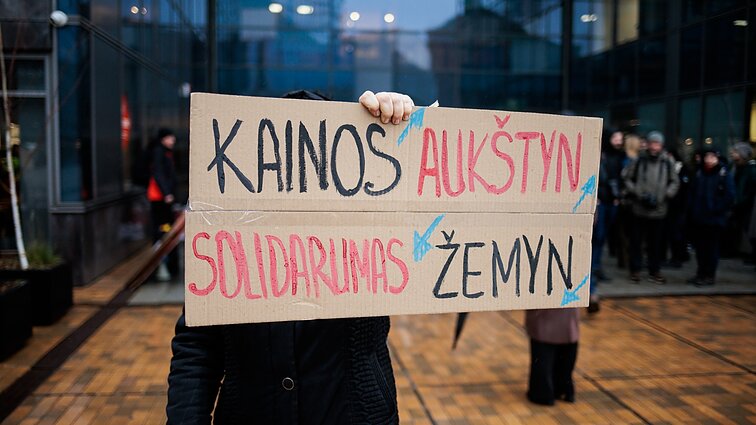 KAINOS AUKŠTYN
SOLIDARUMAS ŽEMYN